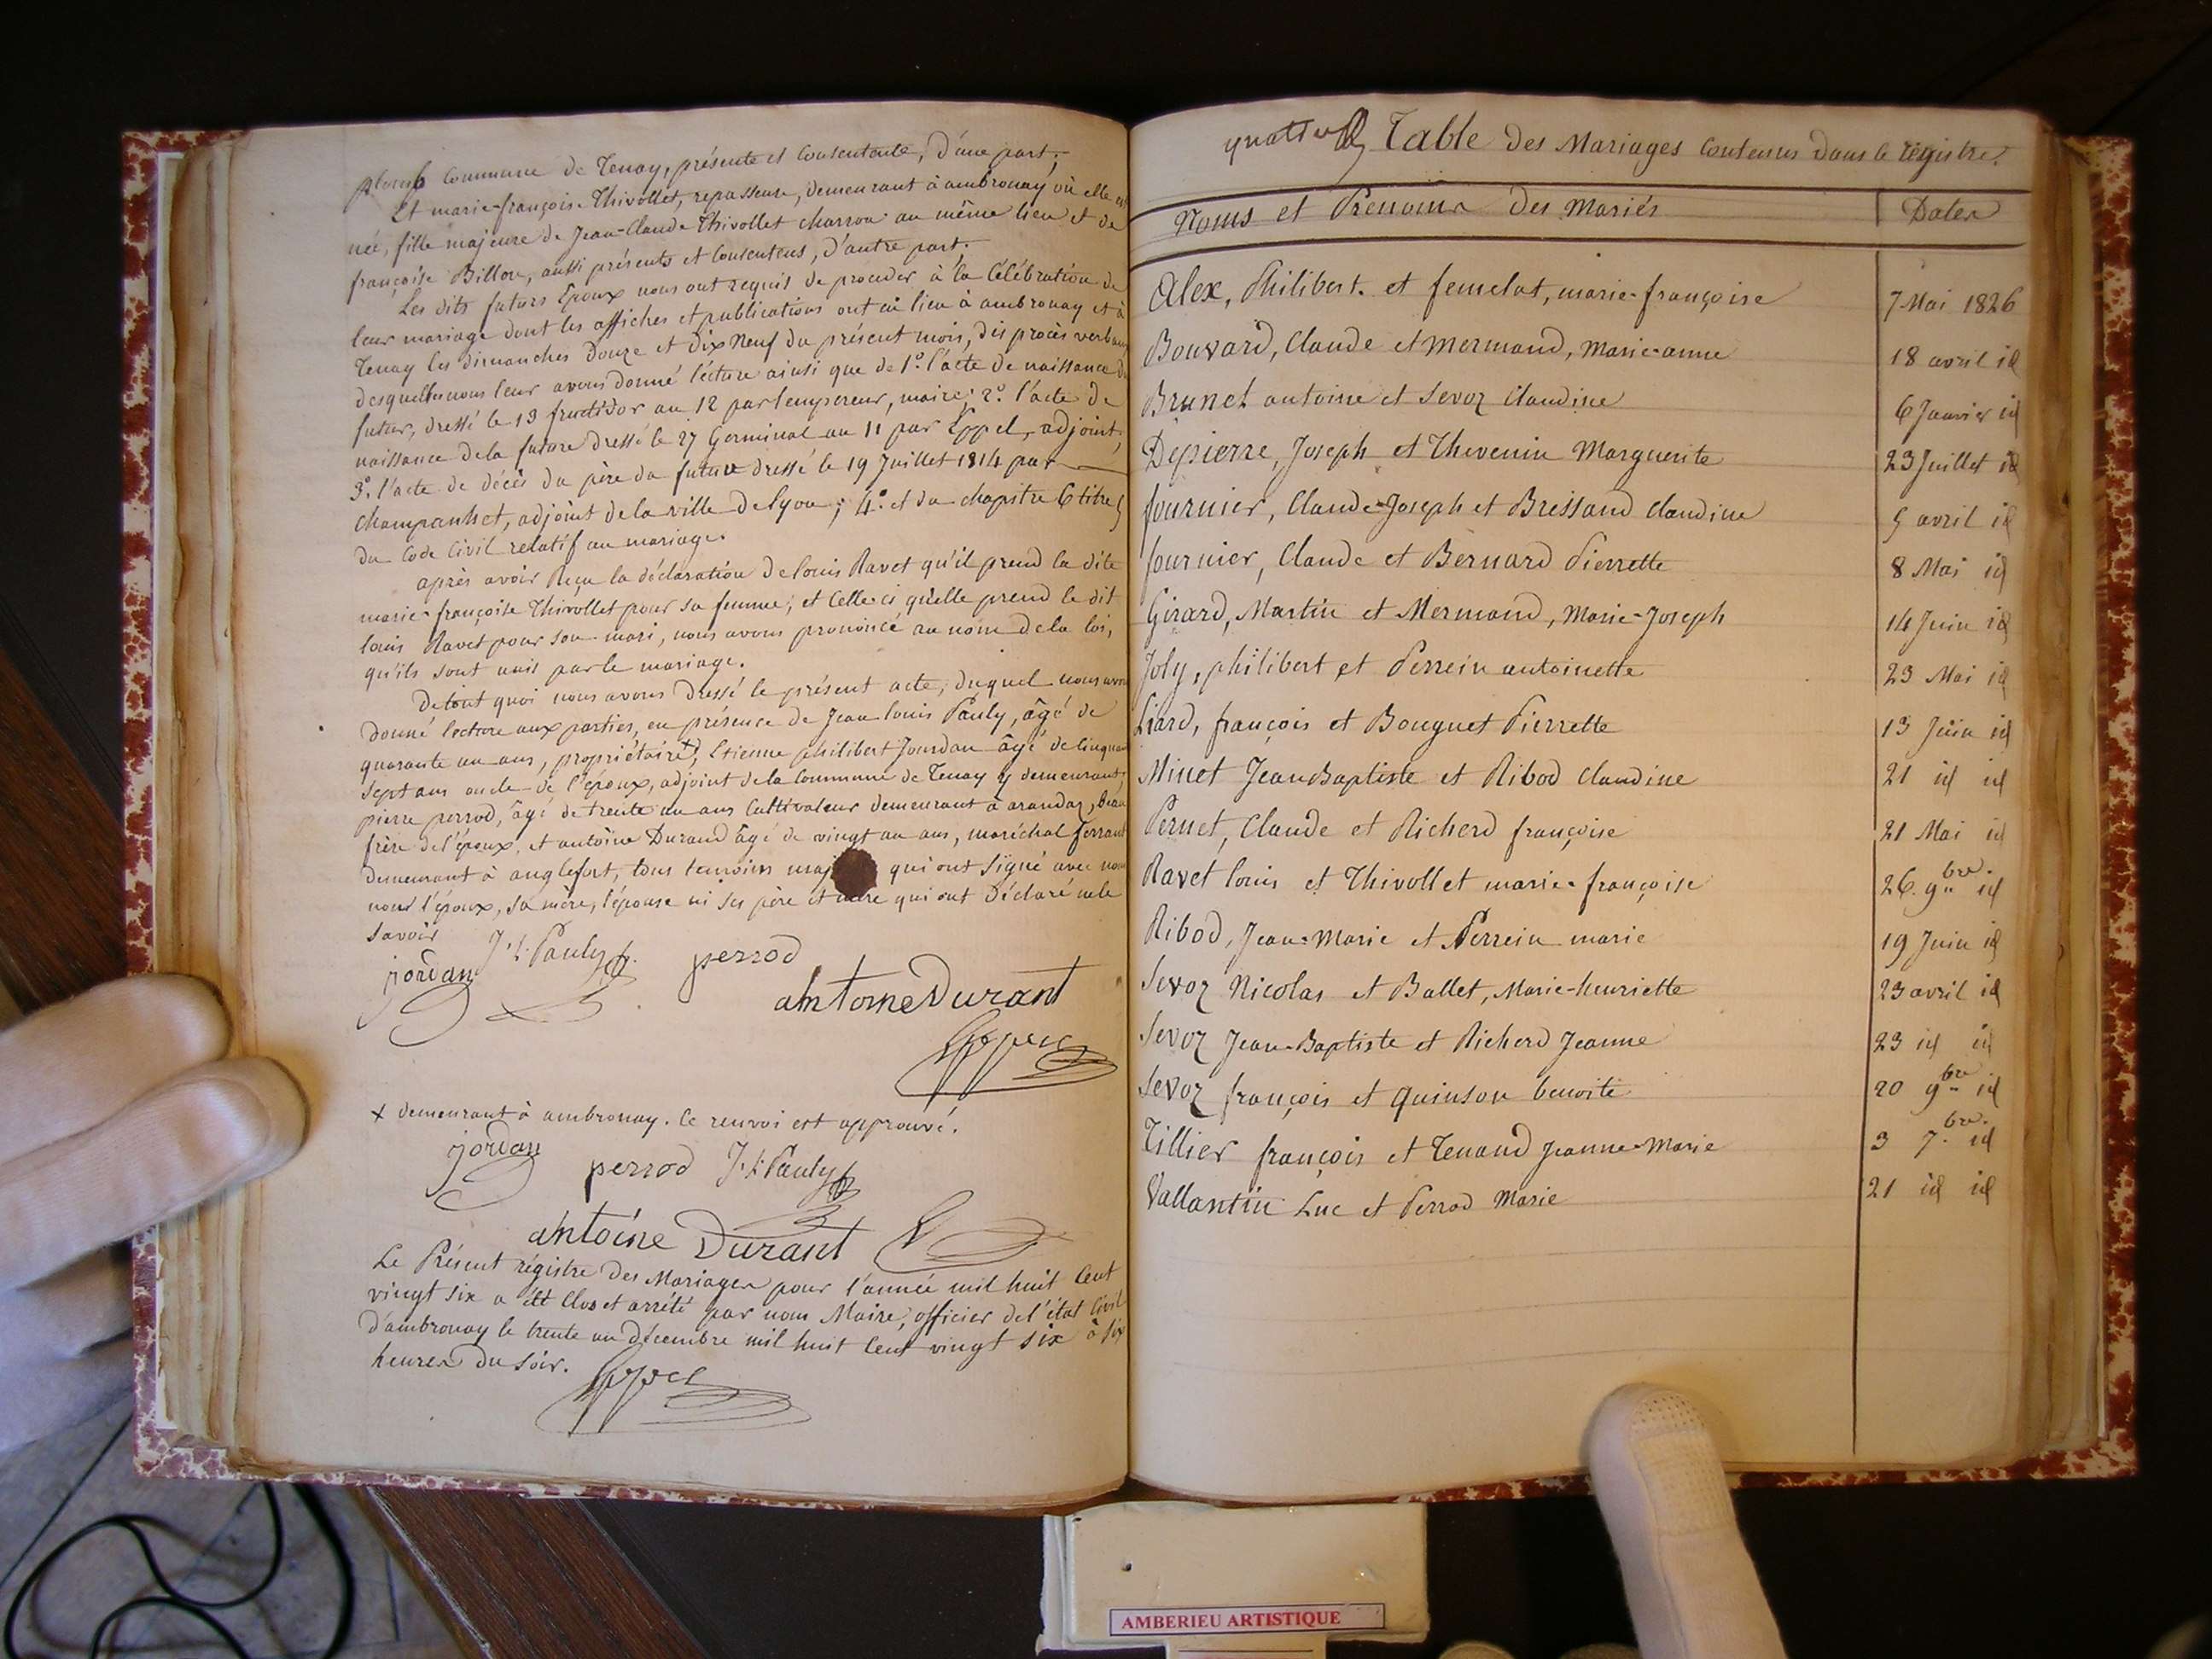 plomb commune de Tenay, présente et consentante, d'une part;
Et marie-françoise Thivollet, repasseuse, demeurant à ambronay où elle est
née, fille majeure de Jean-Claude Thivollet charron au même lieu et de
françoise Billon, aussi présents et consentens, d'autre part.
Les dits futurs Epoux nous ont requis de proceder à la Célébration de
leur mariage dont les affiches et publications ont eù lieu à ambronay et à
Tenay les dimanches Douze et Dix neuf du présent mois, des procès verbaux
desquelles nous leur avons donné lecture ainsi que de 1º. l'acte de naissance du
futur, dressé le 13 fructidor an 12 par lempereur, maire; 2º. l'acte de
naissance de la future dressé le 27 Germinal an 11 par Eppel, adjoint;
3º. l'acte de décès du père du future dressé le 19 Juillet 1814 par
Champanhet, adjoint de la ville de lyon; 4º. et du chapitre 6 titre 5
du Code Civil relatif au mariage.
après avoir Reçu la déclaration de louis Ravet qu'il prend la dite
marie-françoise Thivollet pour sa femme; et Celle-ci qu'elle prend le dit
louis Ravet pour son mari, nous avons prononcé au nom de la loi,
qu'ils sont unis par le mariage.
De tout quoi nous avons Dressé le présent acte, duquel nous avons
Donné lecture aux parties, en présence de Jean louis Pauly, âgé de
quarante un ans, propriétaire +, Etienne philibert Jourdan âgé de Cinquante
Sept ans oncle de l'époux, adjoint de la Commune de Tenay y demeurant,
pierre perrod, âgé de trente un ans Cultivateur demeurant à arandaz, beau
frère de l'époux, et antoine Durand âgé de vingt un ans, maréchal ferrant
demeurant à anglefort, tous temoins maj qui ont signé avec nous
non l'époux, sa mère, l'épouse ni ses père et mère qui ont Déclaré ne le
savoir
J. L. Pauly perrod
jordan
antoine Durant
Eppel
+ demeurant à ambronay. Ce renvoi est approuvé.
jordan perrod J. L. Pauly
antoine Durant
Le Présent régistre Des Mariages pour l'année mil huit Cent
vingt six a été Clos et arrété par nous Maire, officier de l'état Civil
d'ambronay le trente un Décembre mil huit Cent vingt six à six
heures du soir.
Eppel
Table Des Mariages Contenus Dans le régistre.
Noms et Prenoms Des Mariés Dates
Alex, Philibert. et femelat, marie-françoise 7 Mai 1826
Bouvard, Claude et Mermand, Marie-anne 18 avril id
Brunet antoine et Sevoz Claudine 6 Janvier id
Depierre, Joseph et Thevenin Marguerite 23 Juillet id
fournier, Claude-Joseph et Brissaud Claudine 5 avril id
fournier, Claude et Bernard Pierrette 8 Mai id
Girard, Martin et Mermand, Marie-Joseph 14 Juin id
Joly, philibert et Perrein antoinette 23 Mai id
Liard, françois et Bouguet Pierrette 13 Juin id
Minet Jean Baptiste et Ribod Claudine 21 id id
Pernet, Claude et Richerd françoise 21 Mai id
Ravet louis et Thivollet marie-françoise 26. 9bre. id
Ribod, Jean-Marie et Perrein marie 19 Juin id
Sevoz Nicolas et Ballet, Marie-henriette 23 avril id
Sevoz Jean-Baptiste et Richerd Jeanne 23 id id
Sevoz françois et Quinson benoite 20 9bre id
Tillier françois et Tenand Jeanne-Marie 3 7.bre. id
Vallantin Luc et Perrod Marie 21 id id
AMBERIEU ARTISTIQUE